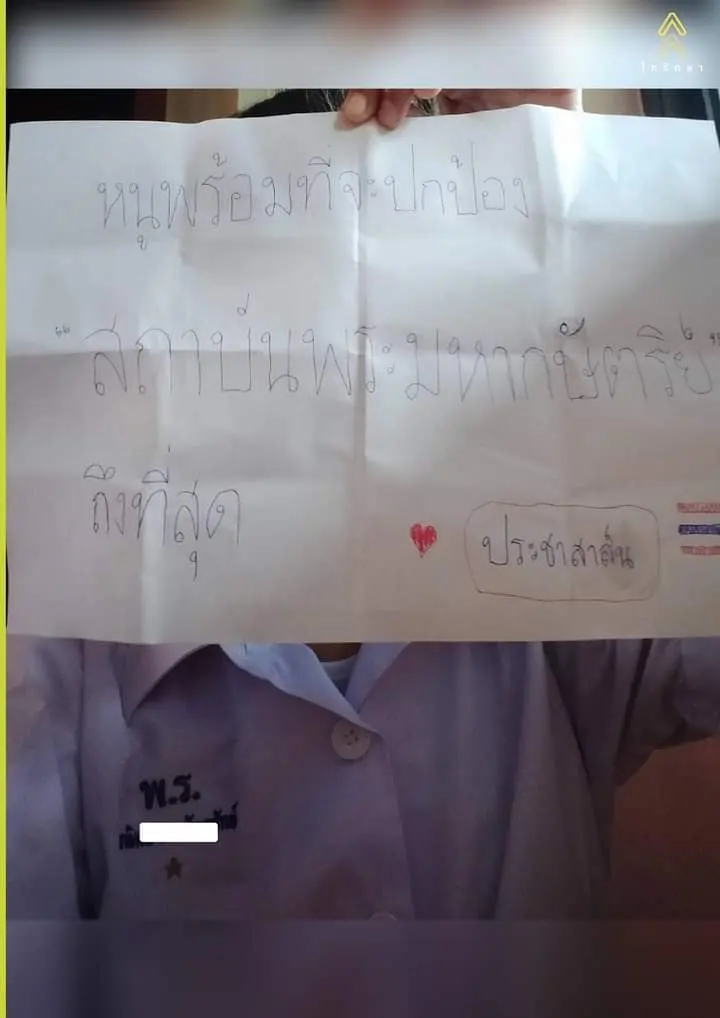 ไทรักษา
หนูพร้อมที่จะปกป้อง
“สถาบันพระมหากษัตริย์”
ถึงที่สุด
ประชาสาส์น
พ.ร.